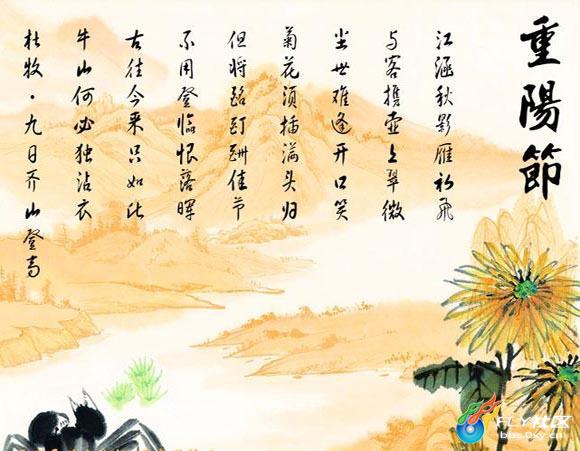 重陽節
江涵秋影雁初飛
与客携壶上翠微
尘世难逢开口笑
菊花须插满头归
但将酩酊酬佳节
不用登临恨落晖
古往今来只如此
牛山何必独沾衣
杜牧·九日齐山登高
FLY社区
bbs.0xy.cn